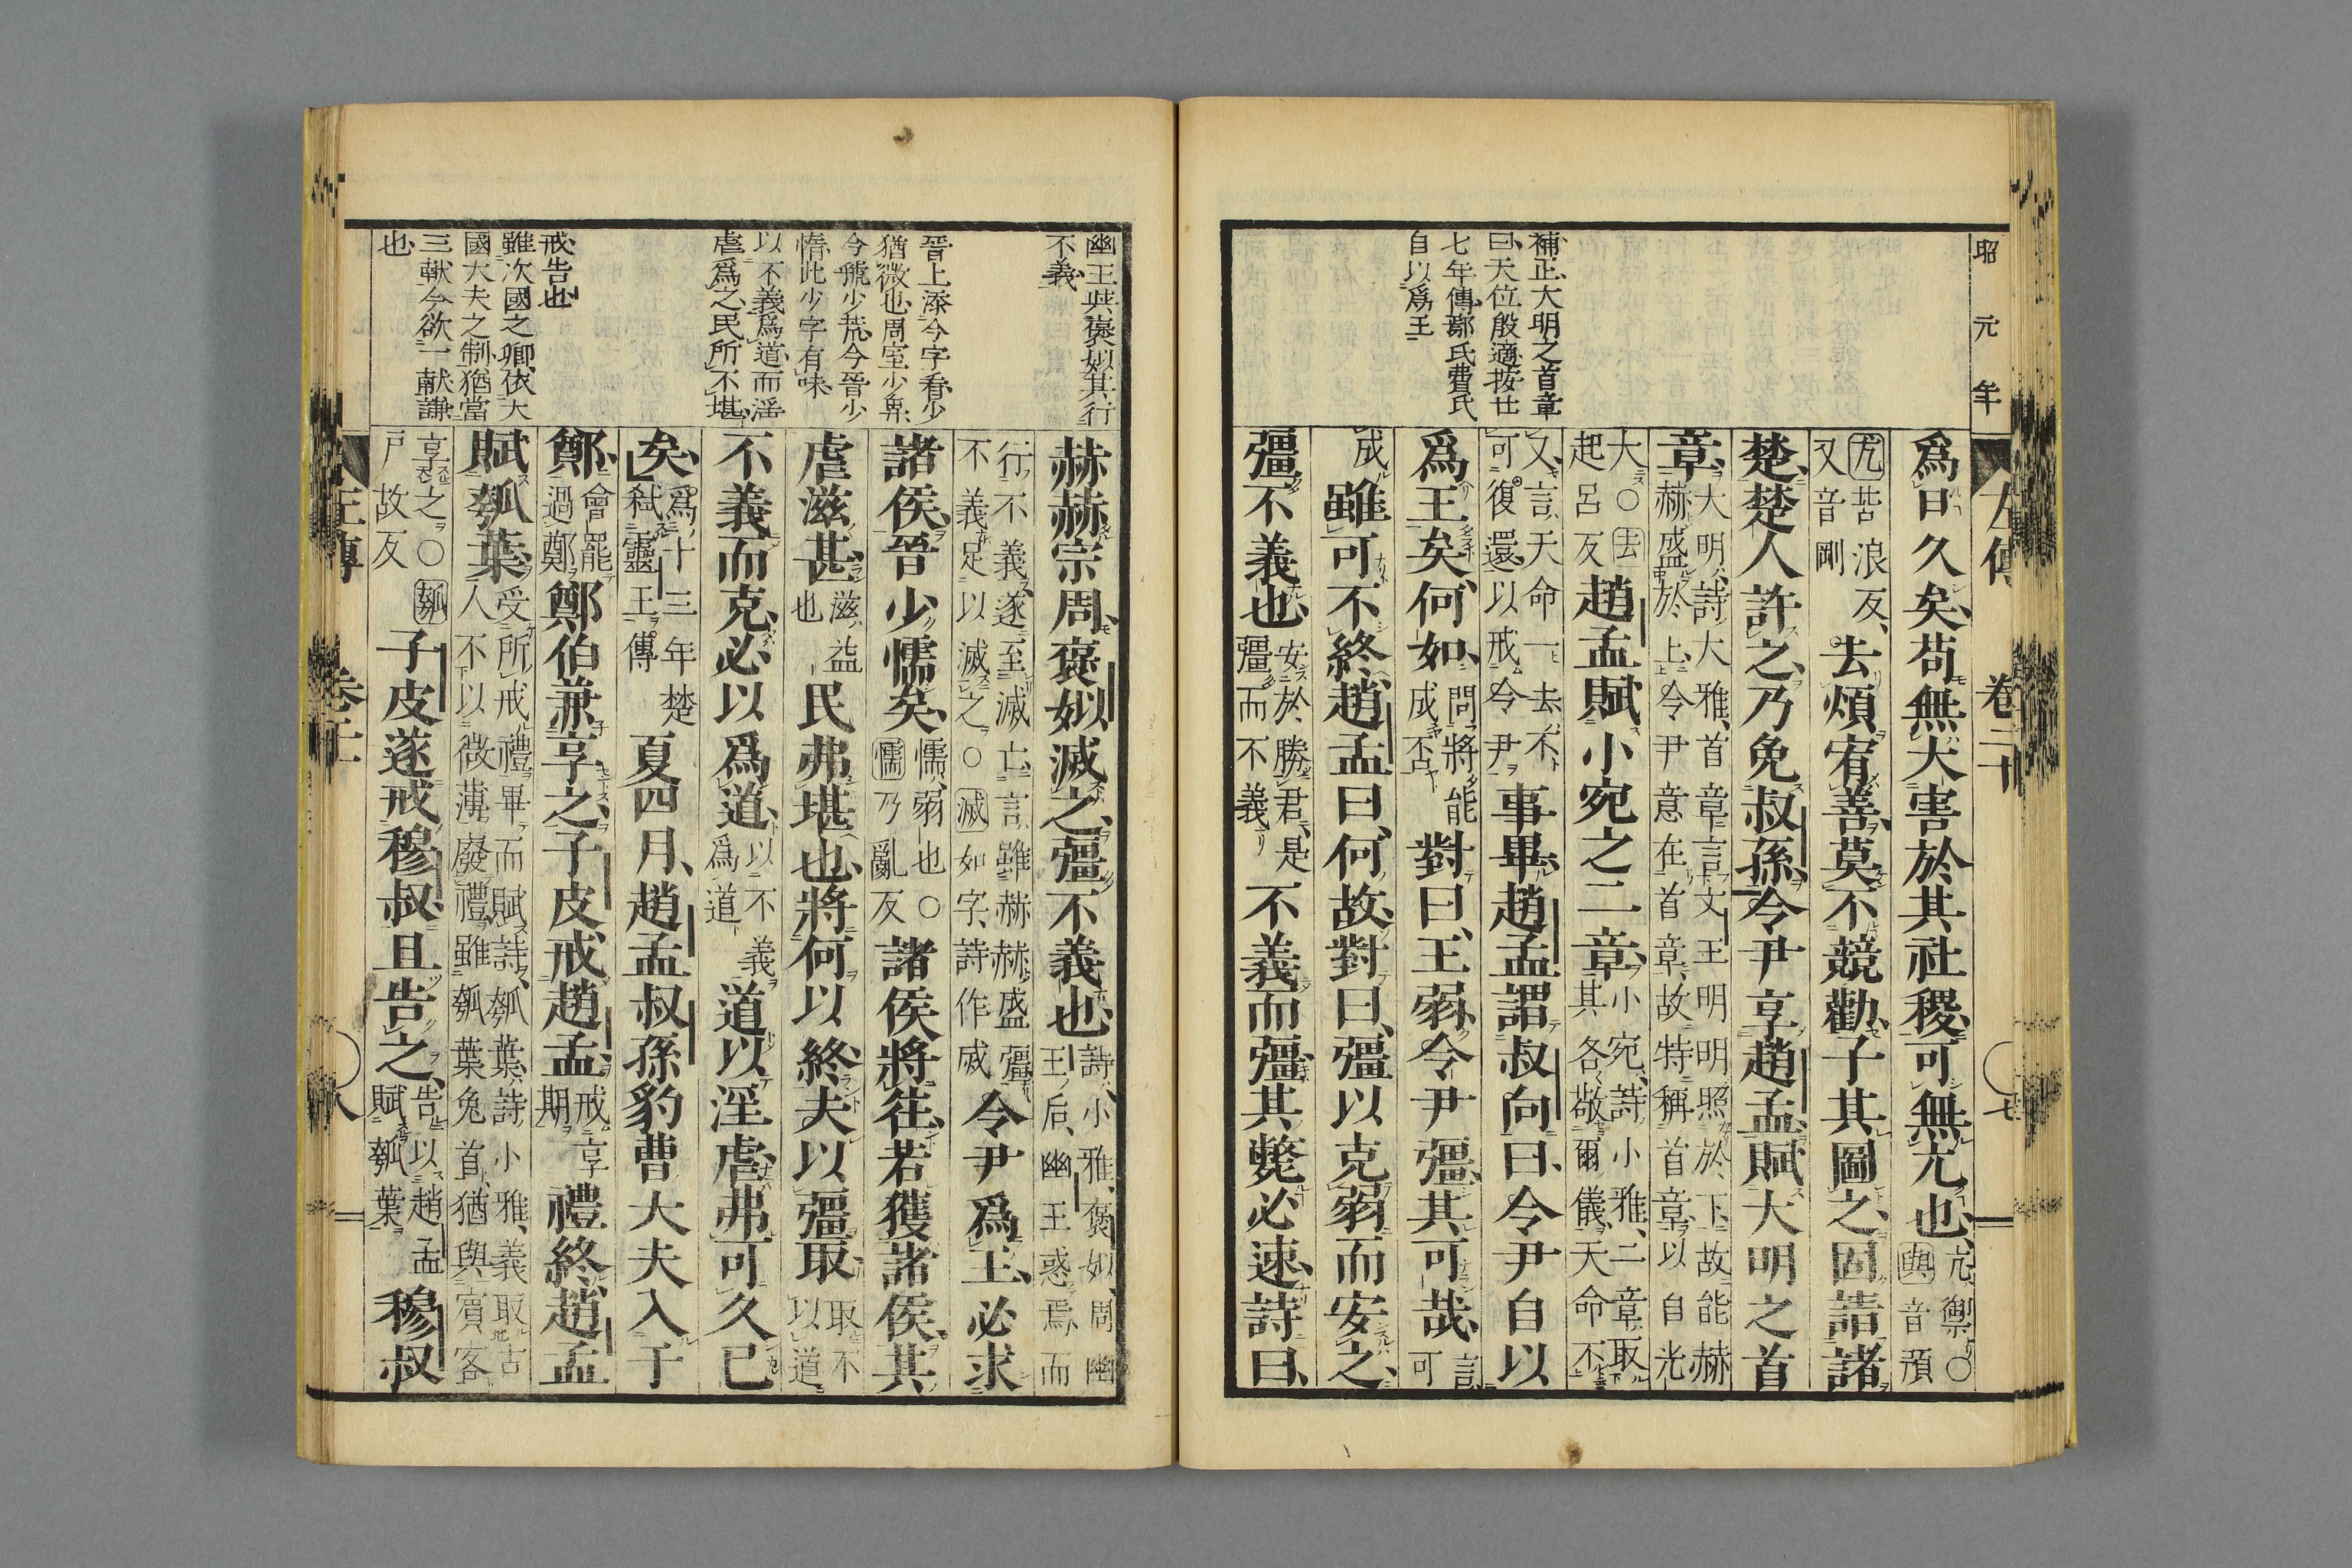 昭元年
左傳 卷二十 七
補正大明之首章
曰天位殷適按廿
七年傳鄭氏費氏
自以爲王
爲日久矣苟無大害於其社稷可無亢也亢禦○與音預
亢苦浪反又音剛去煩宥善莫不競勸子其圖之固請諸
楚楚人許之乃免叔孫令尹享趙孟賦大明之首
章大明詩大雅首章言文王明明照於下故能赫赫盛於上令尹意在首章故特稱首章以自光
大○去起呂反趙孟賦小宛之二章小宛詩小雅二章取其各敬爾儀天命不
又言天命一去不可復還以戒令尹事畢趙孟謂叔向曰令尹自以
爲王矣何如問將能成否對曰王弱令尹彊其可哉言可
成雖可不終趙孟曰何故對曰彊以克弱而安之
彊不義也安於勝君是彊而不義不義而彊其斃必速詩曰
幽王與褒姒其行
不義
晉上添今字看少
猶微也周室少卑
今號少荒今晉少
惰此少字有味
以不義爲道而淫
虐爲之民所不堪
戒告也
雖次國之卿依大
國大夫之制猶當
三獻今欲一獻謙
也
赫赫宗周褒姒滅之彊不義也詩小雅褒姒周幽王后幽王惑焉而
行不義遂至滅亡言雖赫赫盛彊不義足以滅之○滅如字詩作烕令尹爲王必求
諸侯晉少懦矣懦弱也○懦乃亂反諸侯將往若獲諸侯其
虐滋甚滋益也民弗堪也將何以終夫以彊取取不以道
不義而克必以爲道以不義爲道道以淫虐弗可久已
矣爲十三年楚弒靈王傳夏四月趙孟叔孫豹曹大夫入于
鄭會罷過鄭鄭伯兼享之子皮戒趙孟戒享期禮終趙孟
賦瓠葉受所戒禮畢而賦詩瓠葉詩小雅義取古人不以微薄廢禮雖瓠葉兔首猶與賓客
享之○瓠戶故反子皮遂戒穆叔且告之告以趙孟賦瓠葉穆叔
左傳 卷二十 八